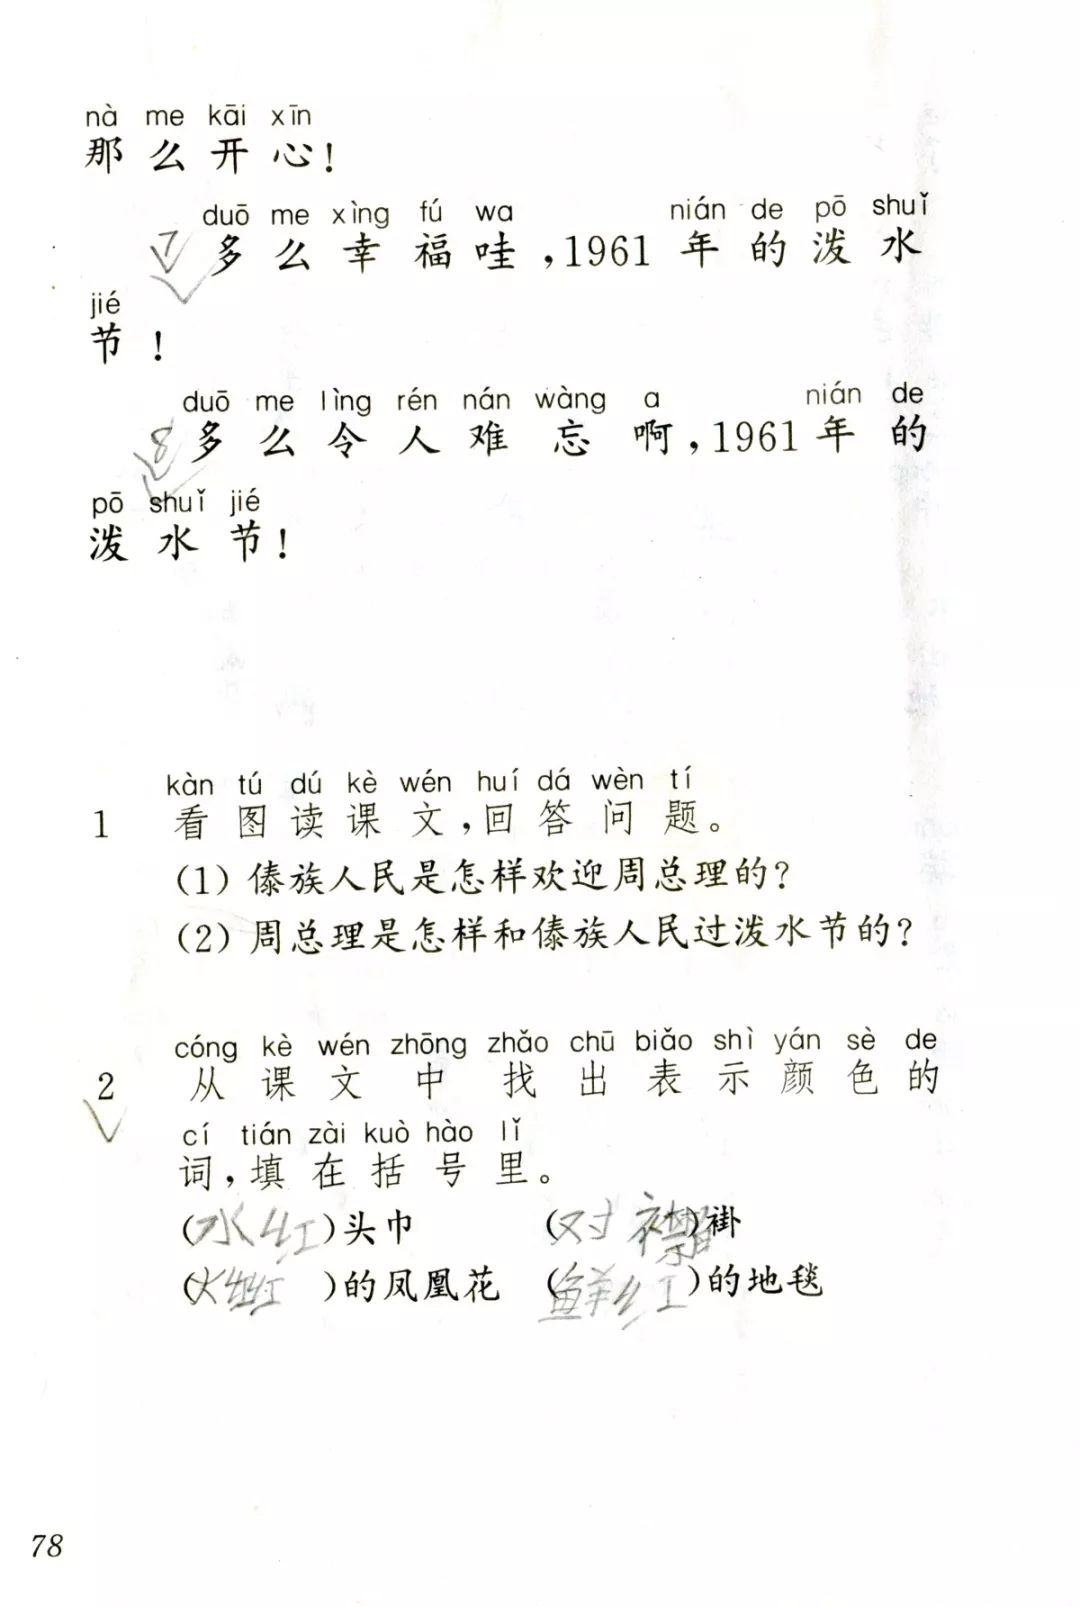 nà me kāi xīn
那么开心!
duō me xìng fú wa nián de pō shuǐ
7 多么幸福哇,1961年的泼水
jié
节!
duō me lìng rén nán wàng a nián de
8 多么令人难忘啊,1961年的
pō shuǐ jié
泼水节!
kàn tú dú kè wén huí dá wèn tí
1 看图读课文,回答问题。
(1)傣族人民是怎样欢迎周总理的?
(2)周总理是怎样和傣族人民过泼水节的?
cóng kè wén zhōng zhǎo chū biǎo shì yán sè de
2 从课文中找出表示颜色的
cí tián zài kuò hào lǐ
词,填在括号里。
(水红)头巾 (对襟)褂
(火红)的凤凰花 (鲜红)的地毯
78